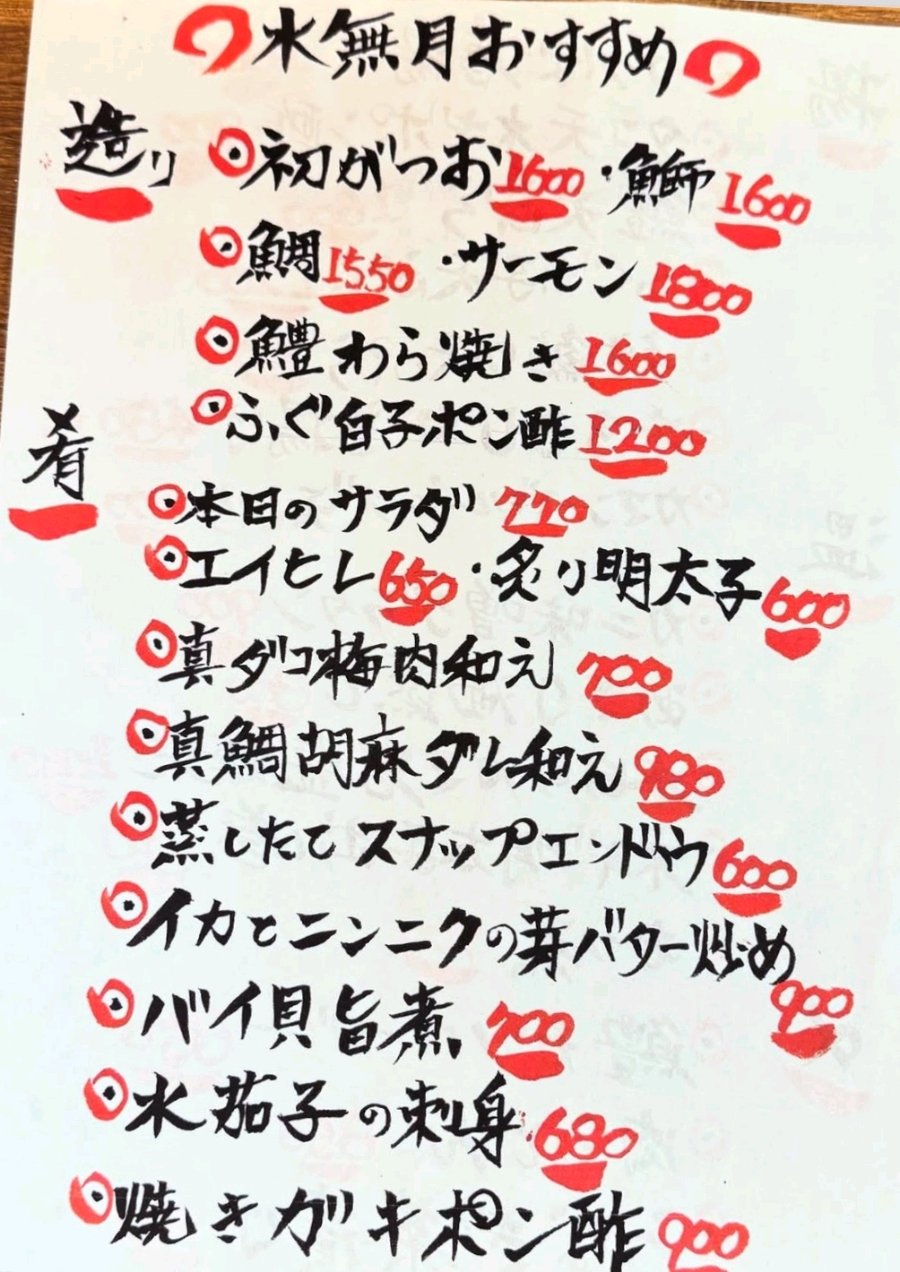 水無月おすすめ
造り
初がつお1600・鰤1600
鯛1550・サーモン1800
鱧わら焼き1600
ふぐ白子ポン酢1200
肴
本日のサラダ770
エイヒレ650・炙り明太子600
真ダコ梅肉和え700
真鯛胡麻ダレ和え980
蒸したてスナップエンドウ600
イカとニンニクの芽バター炒め
900
バイ貝旨煮700
水茄子の刺身680
焼きガキポン酢900